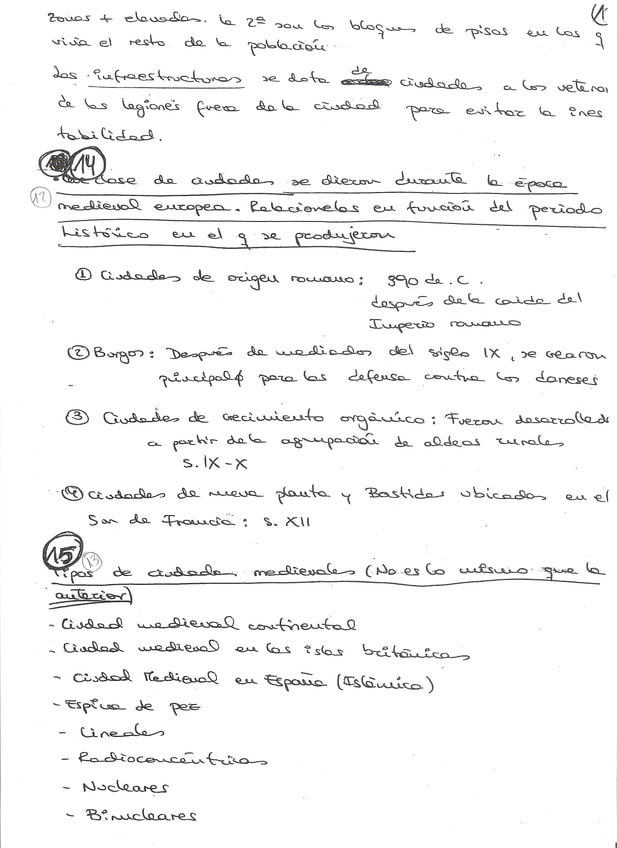 zonas + elevadas. la 2ª son los bloques de pisos en los q
vivia el resto de la población
Las infraestructuras se data de ciudades a los veteran
de las legiones fuera de la ciudad para evitar la ines
tabilidad.
14
clase de ciudades se dieron durante la época
12
medieval europea. Relacionelas en función del periodo
histórico en el q se produjeron
① Ciudades de origen romano: 390 d.C.
después de la caida del
Imperio romano
② Burgos: Después de mediados del siglo IX, se crearon
principal para las defensa contra los daneses
③ Ciudades de crecimiento orgánico: Fueron desarrollads
a partir de la agrupación de aldeas rurales
s. IX-X
④ Ciudades de nueva planta y Bastides ubicados en el
Sur de Francia: s. XII
15 13
Tipos de ciudades medievales (No es lo mismo que la
anterior)
- Ciudad medieval continental
- Ciudad medieval en las islas británicas
- Ciudad Medieval en España (Islámica)
- Espina de pez
- Lineales
- Radioconcéntricas
- Nucleares
- Binucleares